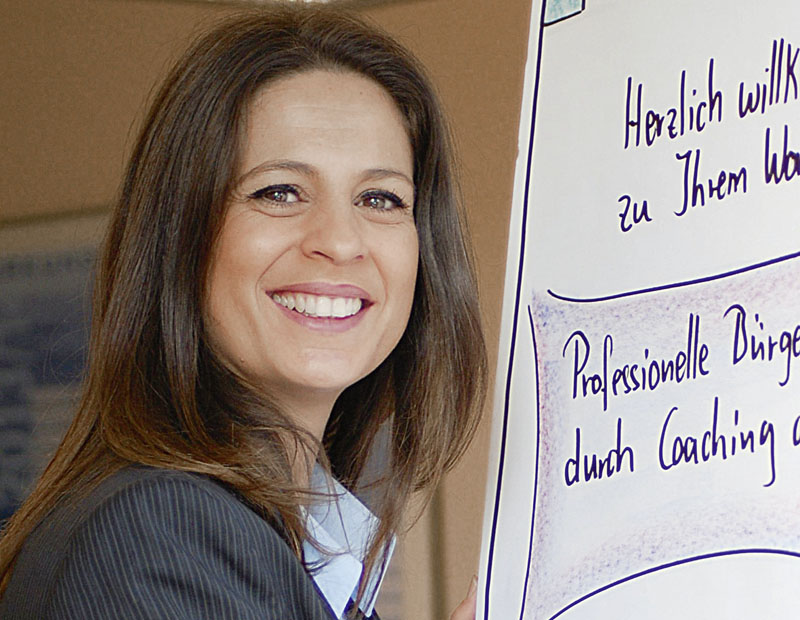 Herzlich willk
zu Ihrem Wor
Professionelle Bürge
durch Coaching